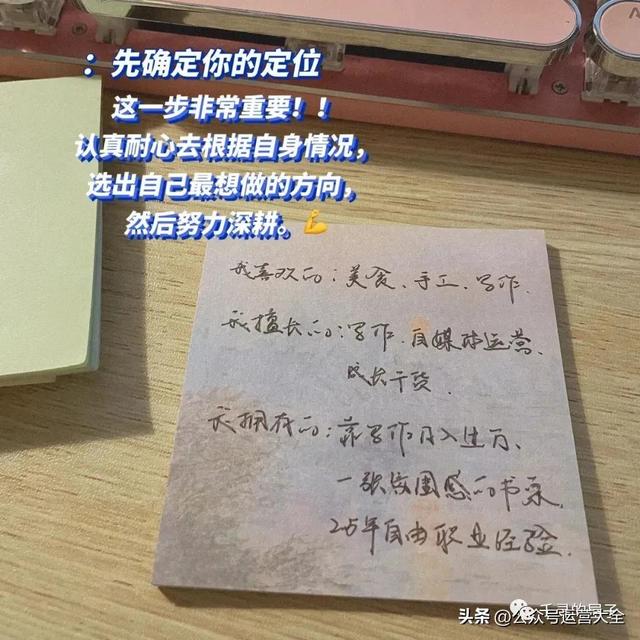 ：先确定你的定位
这一步非常重要！！
认真耐心去根据自身情况，
选出自己最想做的方向，
然后努力深耕。💪
我喜欢的：美食、手工、写作.
我擅长的：写作、自媒体运营、
成长干货.
我拥有的：靠写作月入过万、
一张氛围感的书桌,
2.5年自由职业经验.
千寻的
头条 @公众号运营大全